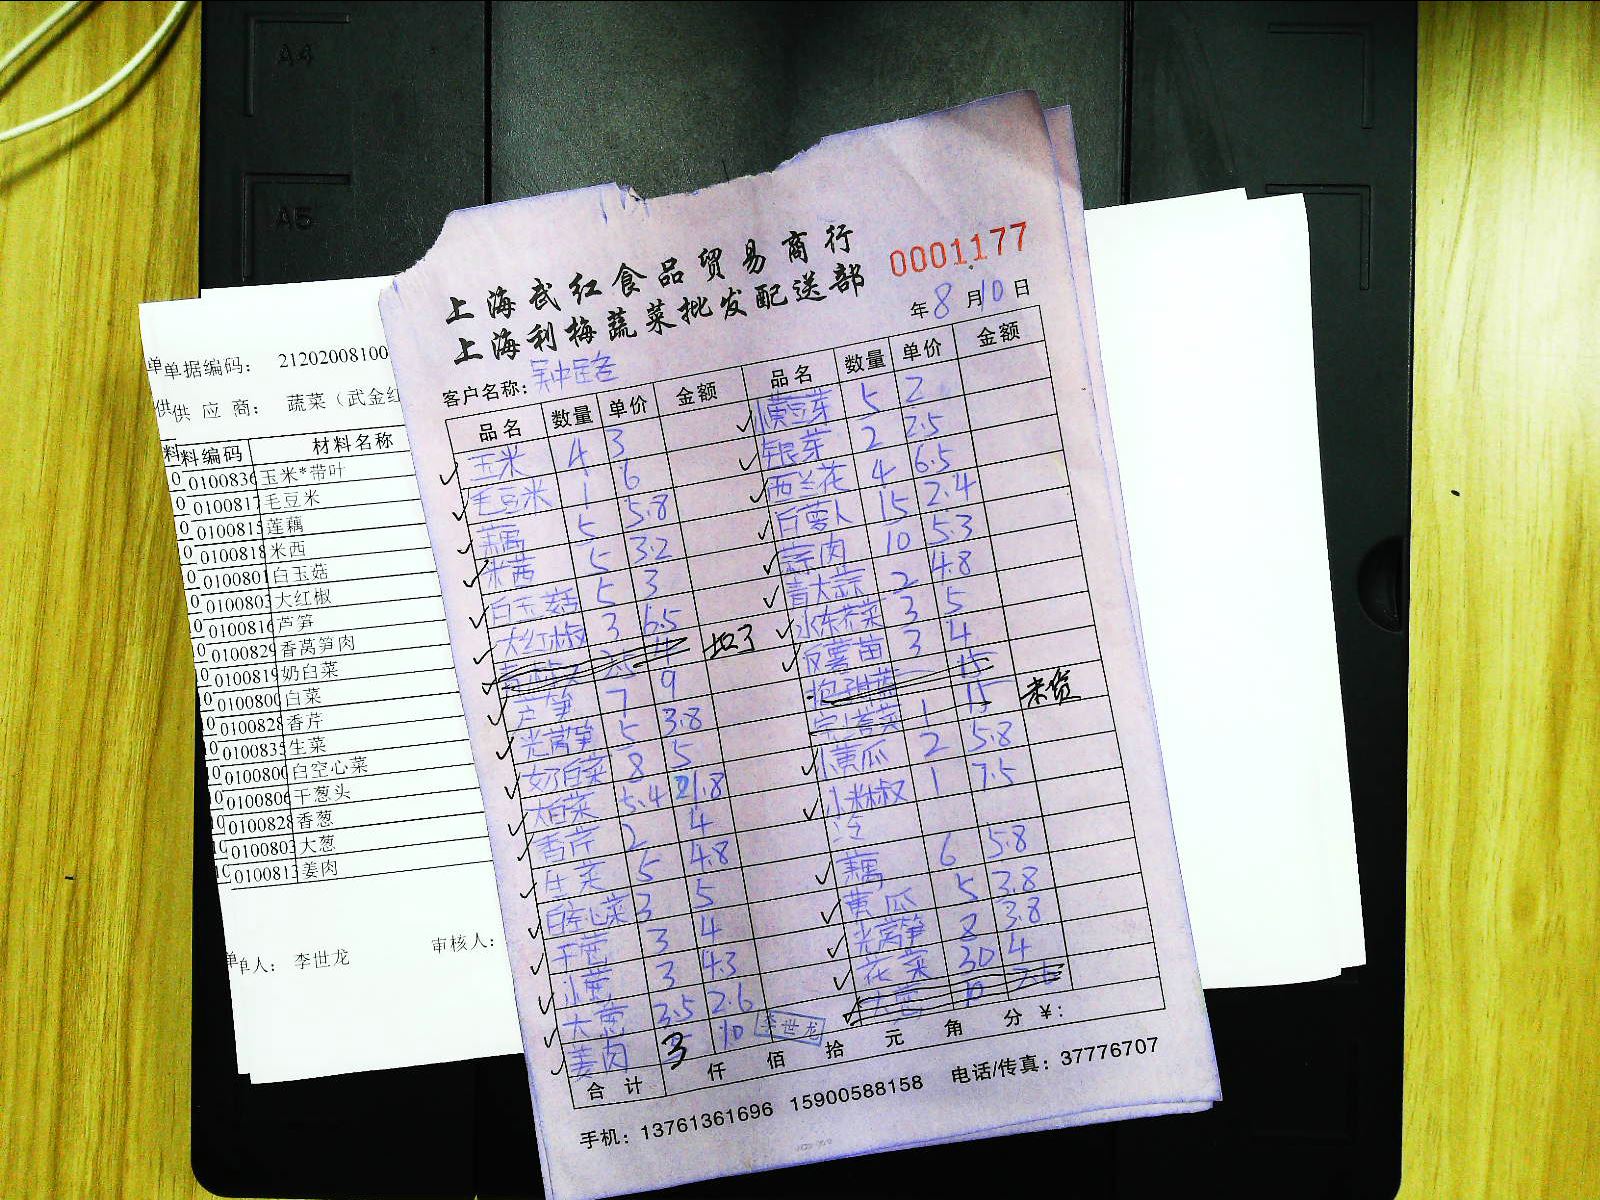 A4
A5
单单据编码： 21202008100
供供 应 商： 蔬菜（武金红
料料编码 材料名称
0100836 玉米*带叶
0100817 毛豆米
0100815 莲藕
0100818 米西
0100801 白玉菇
0100803 大红椒
0100816 芦笋
0100829 香莴笋肉
0100819 奶白菜
0100800 白菜
0100828 香芹
0100835 生菜
0100800 白空心菜
0100806 干葱头
0100828 香葱
0100803 大葱
0100813 姜肉
单人： 李世龙 审核人：
上海武红食品贸易商行
上海利梅蔬菜批发配送部
0001177
年 8 月 10 日
客户名称： 吴中路
品名 数量 单价 金额
玉米 4 3
毛豆米 1 6
藕 5 5.8
米茜 5 3.2
白玉菇 5 3
大红椒 3 6.5
芦笋 7 9
光莴笋 5 3.8
奶白菜 8 5
大白菜 5.4 2.8
香芹 2 4
生菜 5 4.8
白空心菜 3 5
干葱 3 4
小葱 3 4.3
大葱 3.5 2.6
姜肉 3 10
李世龙
品名 数量 单价 金额
小黄豆芽 5 2
银芽 2 2.5
西兰花 4 6.5
白萝卜 15 2.4
蒜肉 10 5.3
青大蒜 2 4.8
水东芥菜 3 5
反薯苗 3 4
15
1 15 未货
小黄瓜 2 5.8
小米椒 1 7.5
冷
藕 6 5.8
黄瓜 5 3.8
光莴笋 8 3.8
花菜 30 4
大葱 10 2.6
合计 仟 佰 拾 元 角 分 ¥：
手机：13761361696 15900588158 电话/传真：37776707